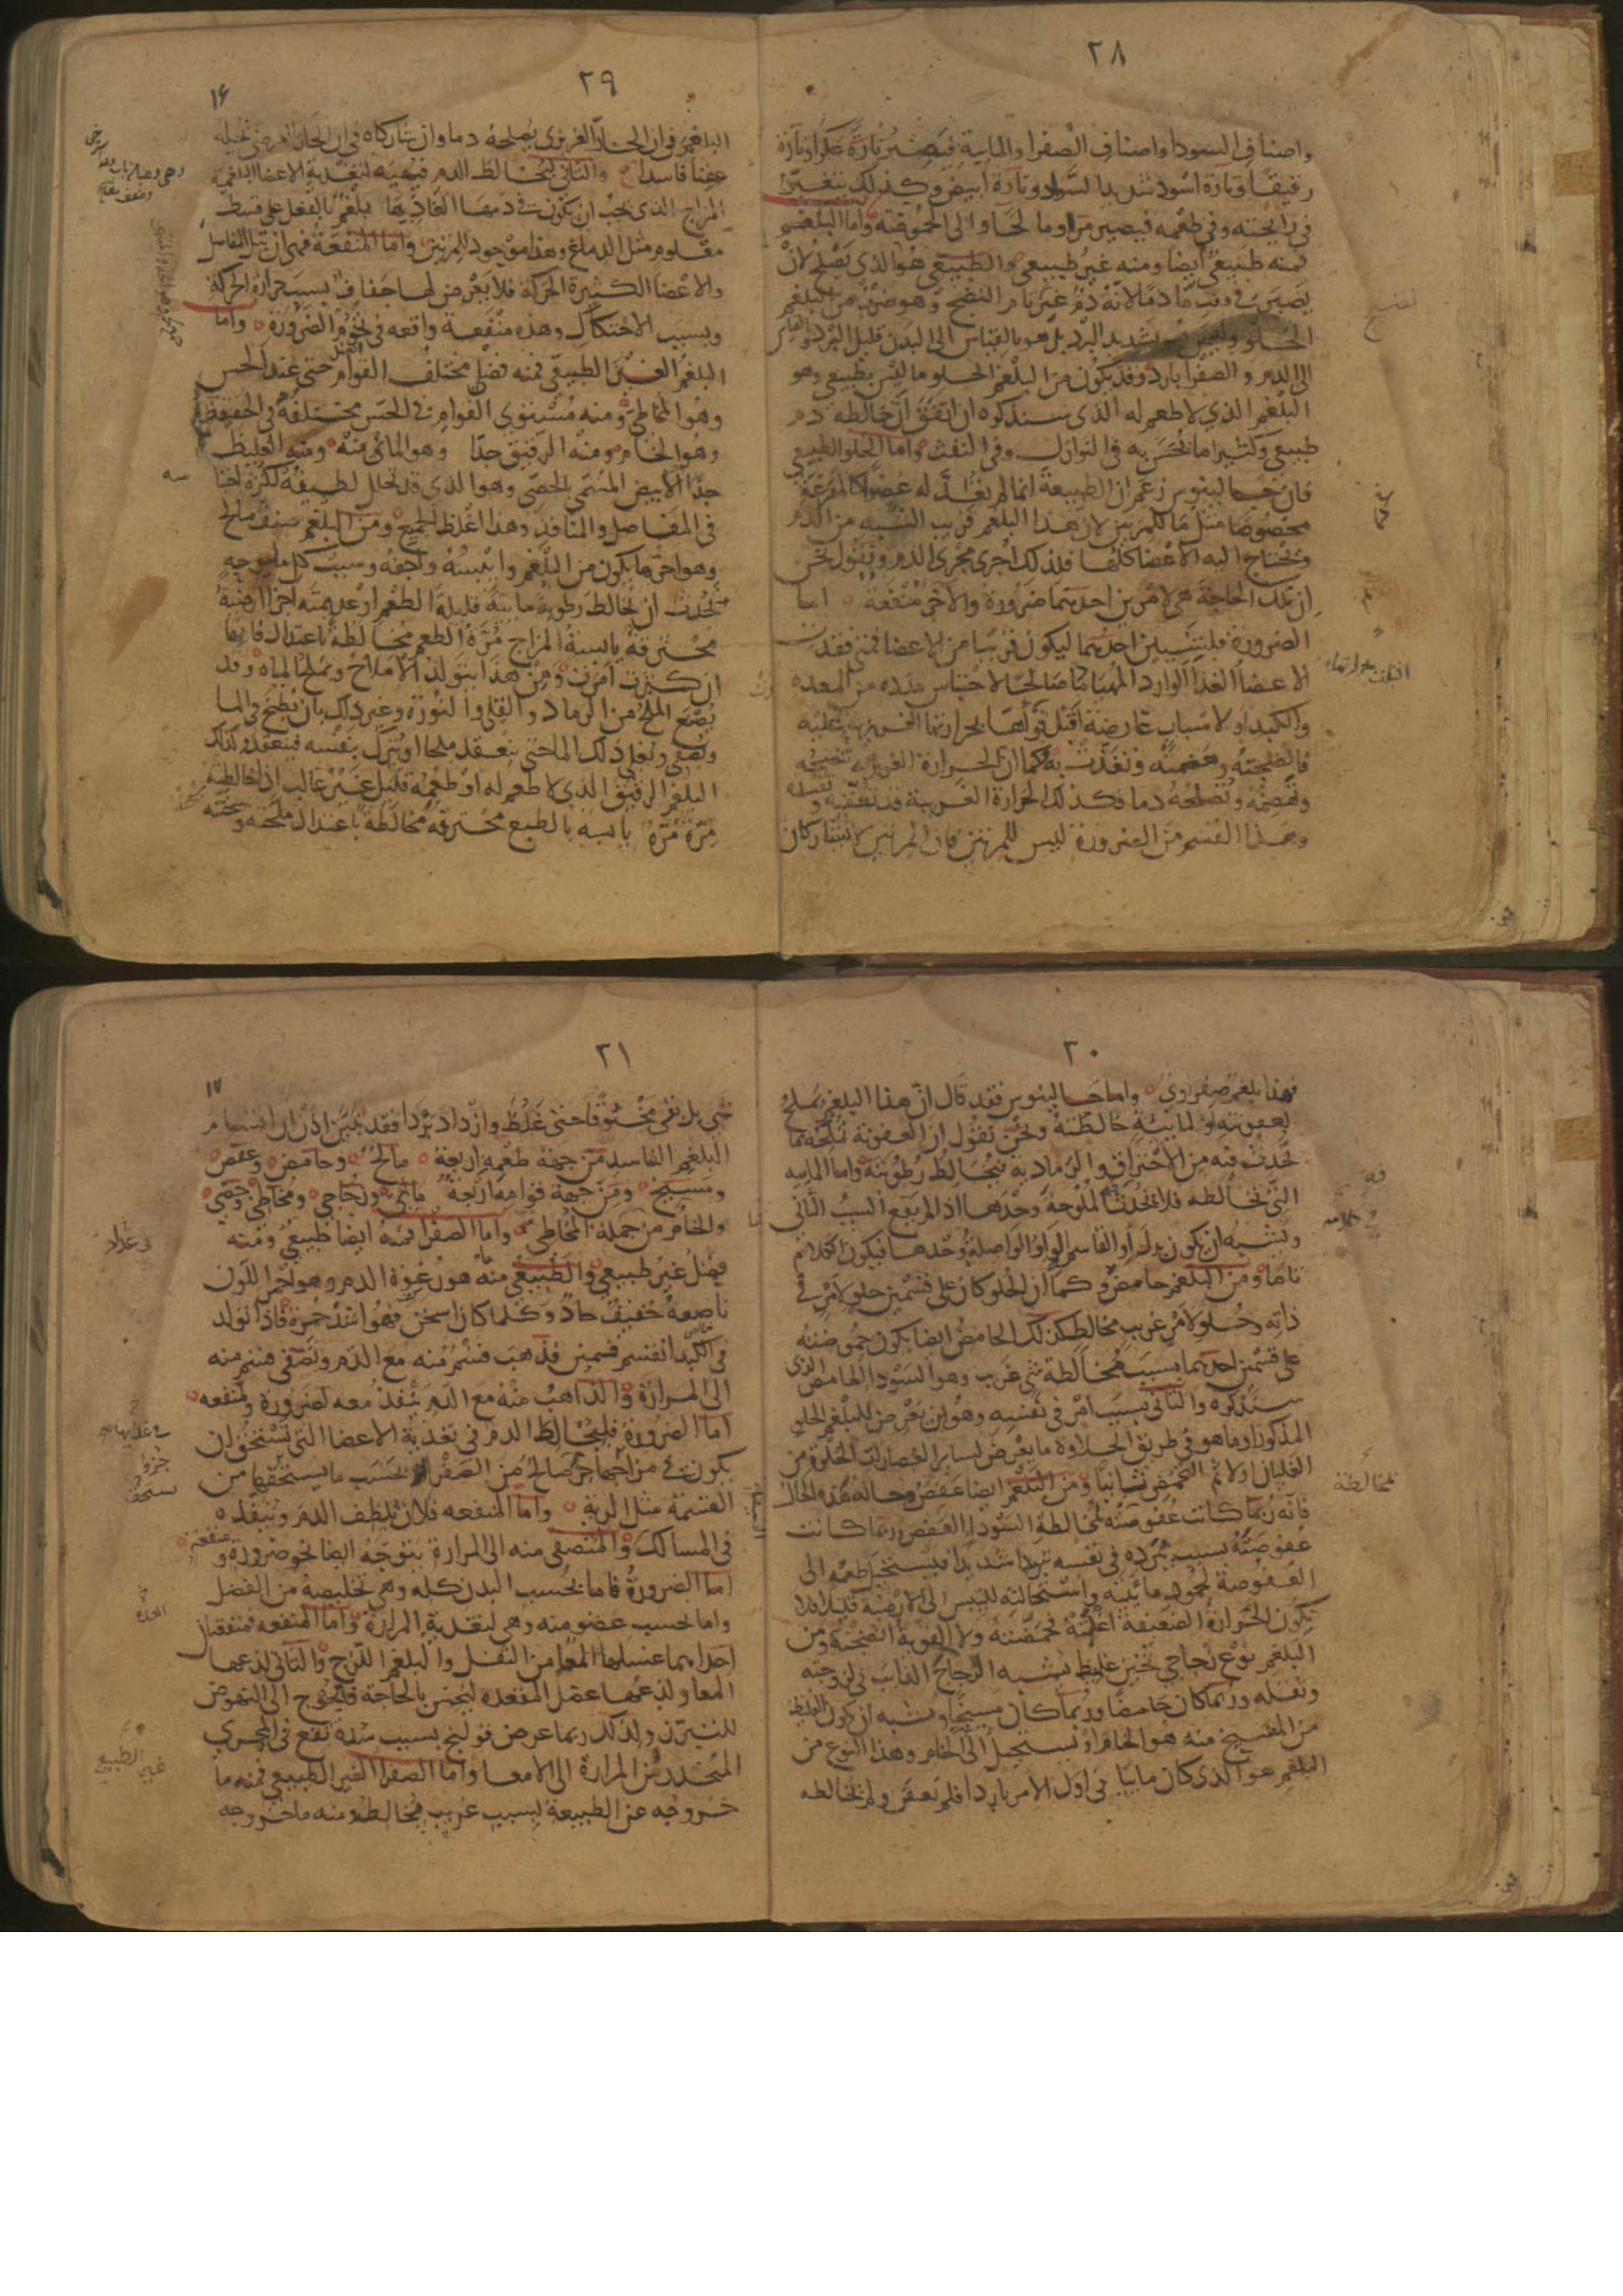 ٢٨
واصناف السودا واصناف الصفرا والمايية فيصير تارة عكرا وتارة
رقيقا وتارة اسود شديد السواد وتارة ابيض وكذلك يتغير
في رايحته وفي طعمه فيصير مرا ومالحا والى الحموضة واما البلغم
فمنه طبيعي ايضا ومنه غير طبيعي والطبيعي هو الذي يصلح لان
يصير في وقت ما دما لانه دم غير تام النضج وهو ضرب من البلغم
الحلو وليس هو بشديد البرد بل هو بالقياس الى البدن قليل البرد وبالقياس
الى الدم والصفرا بارد وقد يكون من البلغم الحلو ما ليس بطبيعي وهو
البلغم الذي لا طعم له الذي سنذكره ان اتفق ان خالطه دم
طبيعي وكثيرا ما يحس به في النوازل وفي النفث واما الحلو الطبيعي
فان جالينوس زعم ان الطبيعة انما لم تعد له عضوا كالمفرغة
مخصوصا مثل ما للمرتين لان هذا البلغم قريب الشبه من الدم
وتحتاج اليه الاعضا كلها فلذلك اجري مجرى الدم ونقول نحن
ان تلك الحاجة هي لامرين احدهما ضرورة والاخر منفعة اما
الضرورة فلسببين احدهما ليكون قريبا من الاعضا فمتى فقدت
الاعضا الغذا الوارد المهيا دما صالحا لاحتباس مدده من المعدة
والكبد او لاسباب عارضة اقبل قواها بحرارتها الغريزية عليه
فانضجته وهضمته وتغذت به وكما ان الحرارة الغريزية تنضجه
وتهضمه وتصلحه دما فكذلك الحرارة الغريبة قد تعفنه وتفسده
وهذا القسم من الضرورة ليس للمرتين فان المرتين لا تشاركان
٢٩
١٦
البلغم في ان الحار الغريزي يصلحه دما وان شاركاه في ان الحار العرضي يحيله
عفنا فاسدا والثاني ليخالط الدم فيهييه لتغذية الاعضا البلغمية
المزاج الذي يجب ان يكون في دمها الغاذيها بلغم بالفعل على قسط
معلوم مثل الدماغ وهذا موجود للمرتين واما المنفعة فهي ان تبل المفاصل
والاعضا الكثيرة الحركة فلا يعرض لها جفاف بسبب حرارة الحركة
وبسبب الاحتكاك وهذه منفعة واقعة في تخوم الضرورة واما
البلغم الغير الطبيعي فمنه فضلي مختلف القوام حتى عند الحس
وهو المخاطي ومنه مستوي القوام في الحس مختلفه في الحقيقة
وهو الخام ومنه الرقيق جدا وهو المائي منه ومنه الغليظ
جدا الابيض المسمى بالجصي وهو الذي قد تحلل لطيفه لكثرة احتباسه
في المفاصل والمنافذ وهذا اغلظ الجميع ومن البلغم صنف مالح
وهو احر ما يكون من البلغم وايبسه واجفه وسبب كل ملوحة
تحدث ان تخالط رطوبة مايية قليلة الطعم او عديمته اجزا ارضية
محترقة يابسة المزاج مرة الطعم مخالطة باعتدال فانها
ان كثرت امرت ومن هذا يتولد الاملاح وتملح المياه وقد
يصنع الملح من الرماد والقلي والنورة وغير ذلك بان يطبخ في الما
ويصفى ويغلى ذلك الما حتى ينعقد ملحا او يترك بنفسه فينعقد وكذلك
البلغم الرقيق الذي لا طعم له او طعمه قليل غير غالب اذا خالطته
مرة مرة يابسة بالطبع محترقة مخالطة باعتدال ملحته وسخنته
٢٠
فهذا بلغم صفراوي واما جالينوس فقد قال ان هذا البلغم يملح
لعفونته او لمايية خالطته ونحن نقول ان العفونة تملحه بما
تحدث فيه من الاحتراق والرمادية فتخالط رطوبته واما المايية
التي تخالطه فلا تحدث الملوحة وحدها اذا لم يقع السبب الثاني
ويشبه ان يكون بدل او القاسمة الواو الواصلة وحدها فيكون الكلام
تاما ومن البلغم حامض وكما ان الحلو كان على قسمين حلو لامر في
ذاته وحلو لامر غريب مخالط كذلك الحامض ايضا يكون حموضته
على قسمين احدهما بسبب مخالطة شي غريب وهو السودا الحامض الذي
سنذكره والثاني بسبب امر في نفسه وهو ان يعرض للبلغم الحلو
المذكور او ما هو في طريق الحلاوة ما يعرض لساير العصارات الحلوة من
الغليان اولا ثم التحمض ثانيا ومن البلغم ايضا عفص وحاله هذه الحال
فانه ربما كانت عفوصته لمخالطة السودا العفص وربما كانت
عفوصته بسبب تبرده في نفسه تبردا شديدا فيستحيل طعمه الى
العفوصة لجمود ماييته واستحالته لليبس الى الارضية قليلا فلا
تكون الحرارة الضعيفة اغلته فحمضته ولا القوية انضجته ومن
البلغم نوع زجاجي ثخين غليظ يشبه الزجاج الذايب في لزوجته
وثقله وربما كان حامضا وربما كان مسيخا ويشبه ان يكون الغليظ
من المسيخ منه هو الخام او يستحيل الى الخام وهذا النوع من
البلغم هو الذي كان ماييا في اول الامر باردا فلم يعفن ولم يخالطه
٢١
١٧
شي بل بقي مخنوقا حتى غلظ وازداد بردا فقد تبين اذن ان اقسام
البلغم الفاسد من جهة طعمه اربعة مالح وحامض وعفص
ومسيخ ومن جهة قوامه اربعة مائي وزجاجي ومخاطي وجصي
والخام من جملة المخاطي واما الصفرا فمنه ايضا طبيعي ومنه
فضل غير طبيعي والطبيعي منه هو رغوة الدم وهو احمر اللون
ناصعه خفيف حاد وكلما كان اسخن فهو اشد حمرة فاذا تولد
في الكبد انقسم قسمين فذهب قسم منه مع الدم وتصفى قسم منه
الى المرارة والذاهب منه مع الدم ينفذ معه لضرورة ومنفعه
اما الضرورة فليخالط الدم في تغذية الاعضا التي تستحق ان
يكون في مزاجها جز صالح من الصفرا بحسب ما يستحقها من
القسمة مثل الرية واما المنفعه فلان يلطف الدم وينفذه
في المسالك والمتصفى منه الى المرارة يتوجه ايضا نحو ضرورة ومنفعة
اما الضرورة فاما بحسب البدن كله وهي تخليصه من الفضل
واما بحسب عضو منه وهي لتغذية المرارة واما المنفعه فمنفعتان
احداهما غسلها المعا من الثفل والبلغم اللزج والثاني لذعها
المعا ولذعها عضل المقعدة ليحس بالحاجة فيحوج الى النهوض
للتبرز ولذلك ربما عرض قولنج بسبب سدة تقع في المجرى
المنحدر من المرارة الى الامعا واما الصفرا الغير الطبيعي فمنه ما
خروجه عن الطبيعة لسبب غريب مخالط ومنه ما خروجه